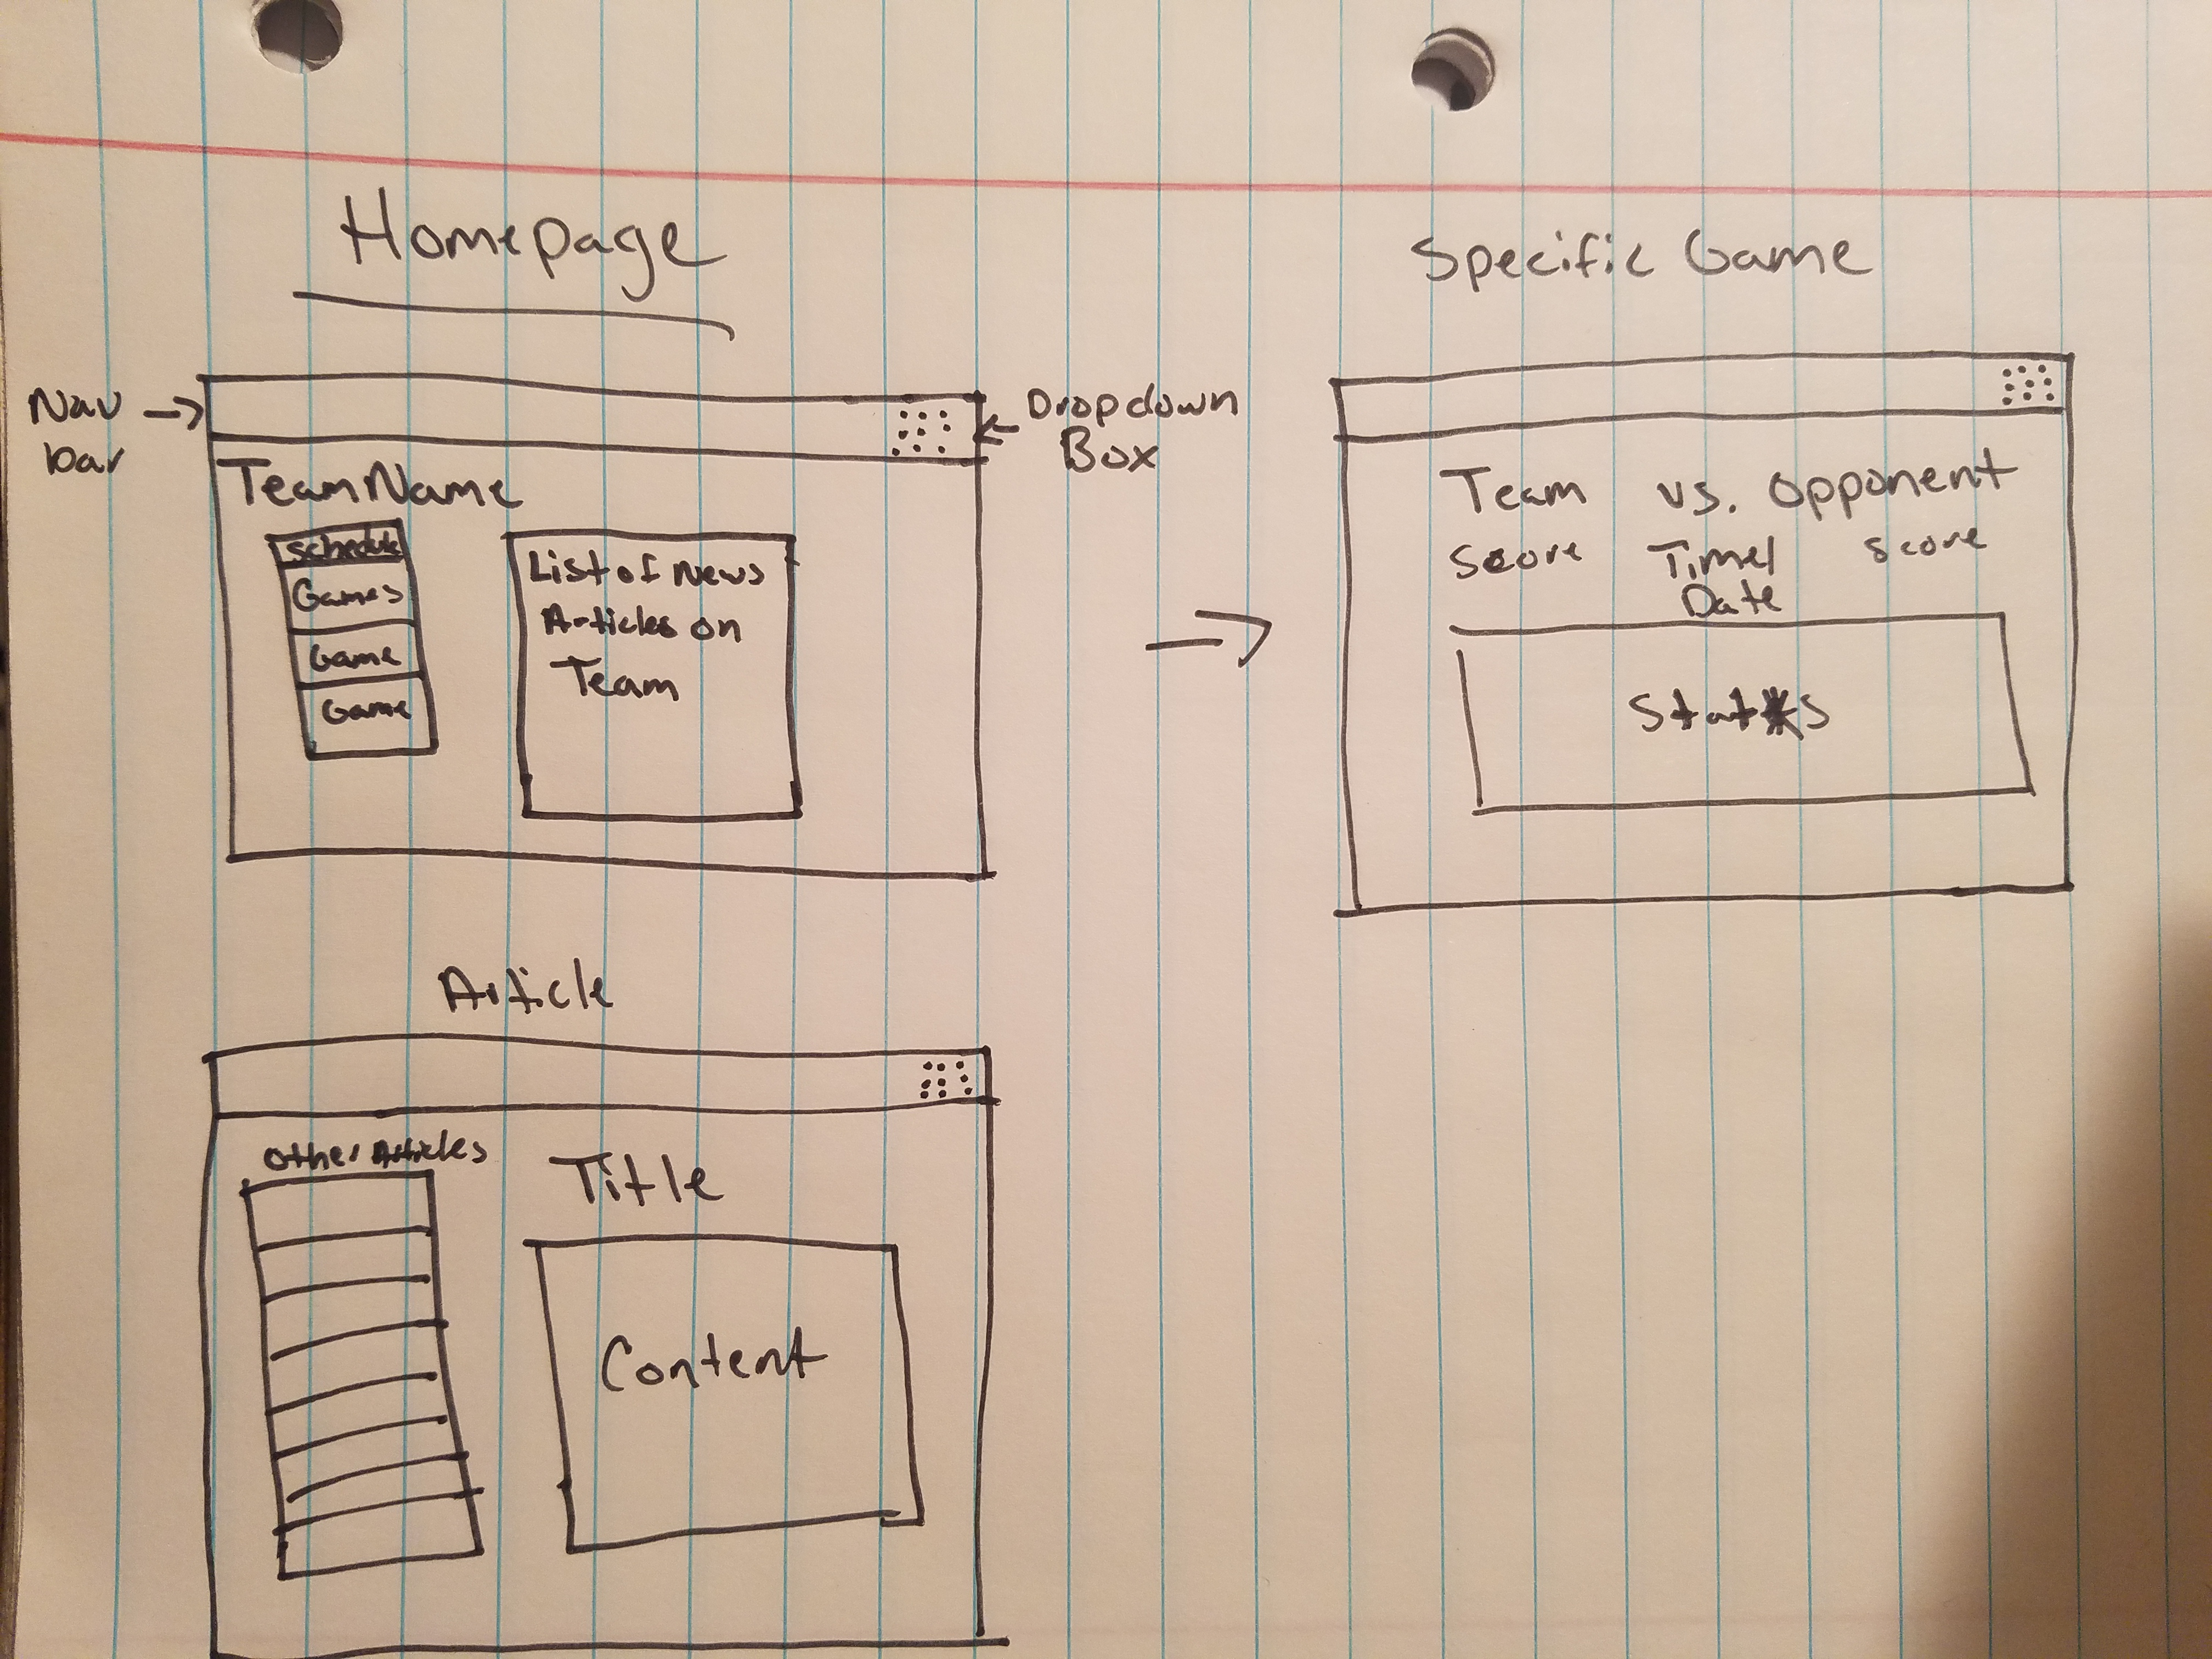 Homepage
Nav
bar
Dropdown
Box
TeamName
Schedule
Games
Game
Game
List of News
Articles on
Team
Specific Game
Team vs. Opponent
Score Time/ Score
Date
Stats
Article
Other Articles
Title
Content